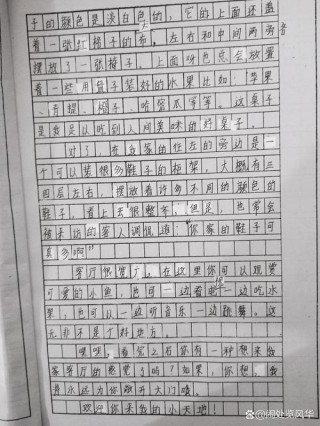 子的颜色是淡白色的,它的上面还盖
着一张红橘子的布。左右和中间两旁各
摆放了一张椅子,上面呀也总会放置
着一些用盘子装好的水果比如:苹果
、青提、橙子、哈密瓜等等。这桌子
是我足以吃到人间美味的好桌子。
对了,在我家的柱左的旁边是一
个可以装很多鞋子的柜架,大概有三
四层左右,摆放着许多不同的颜色的
鞋子,看上去很整齐,但是,也常会
被来访的客人调侃道:“你家的鞋子可
真多啊”
客厅很宽广,在这里你可以观赏
可爱的小鱼,也可一边看电视一边吃水
果,也可以一边听音乐一边跳舞。这
无非不是个好地方。
嘿嘿,看完之后你有一种想来我
家客厅的感觉了吗?如果,你想。我
将永远为你敞开大门哦。
欢迎你来我的小天地!
@闹处览风华